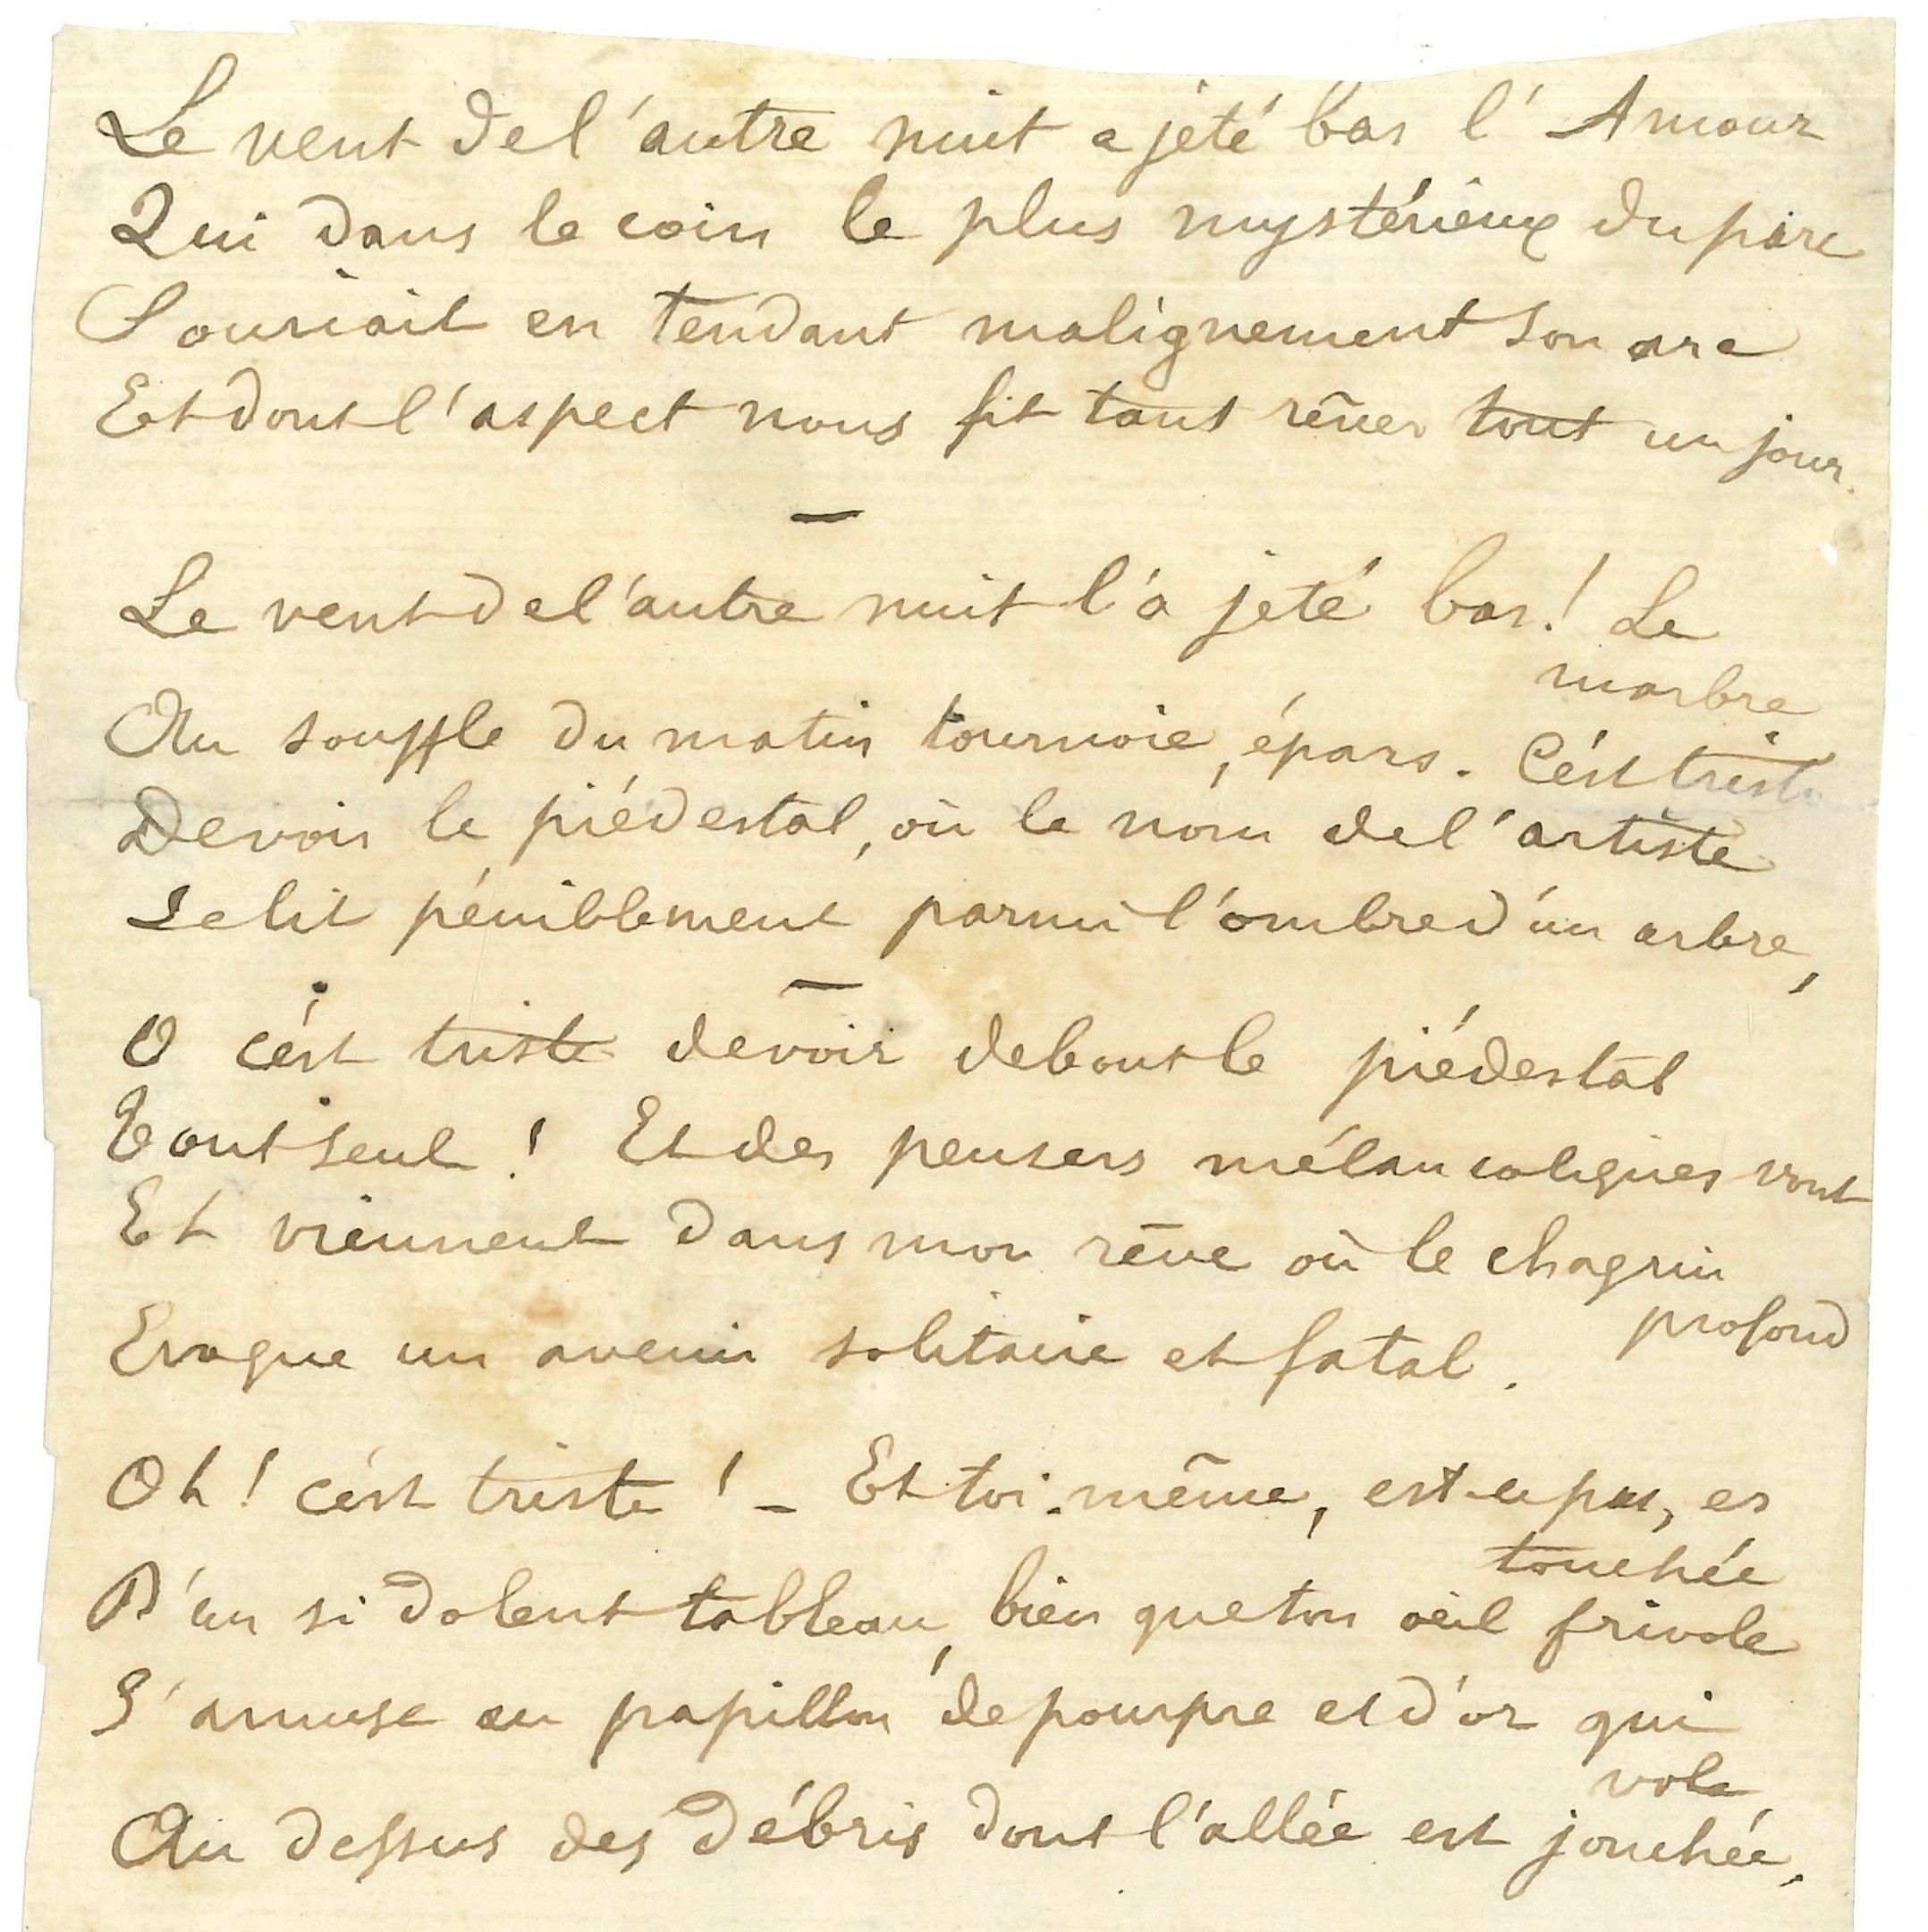 Le vent de l'autre nuit a jeté bas l'Amour
Qui dans le coin le plus mystérieux du parc
Souriait en tendant malignement son arc
Et dont l'aspect nous fit tant rêver tout un jour.
—
Le vent de l'autre nuit l'a jeté bas ! Le
marbre
Au souffle du matin tournoie, épars. C'est triste
De voir le piédestal, où le nom de l'artiste
Se lit péniblement parmi l'ombre d'un arbre,
—
O c'est triste de voir debout le piédestal
Tout seul ! Et des pensers mélancoliques vont
Et viennent dans mon rêve où le chagrin
profond
Evoque un avenir solitaire et fatal.
Oh ! c'est triste ! - Et toi-même, est-ce pas, es
touchée
D'un si dolent tableau, bien que ton oeil frivole
S'amuse au papillon de pourpre et d'or qui
vole
Au dessus des débris dont l'allée est jonchée.